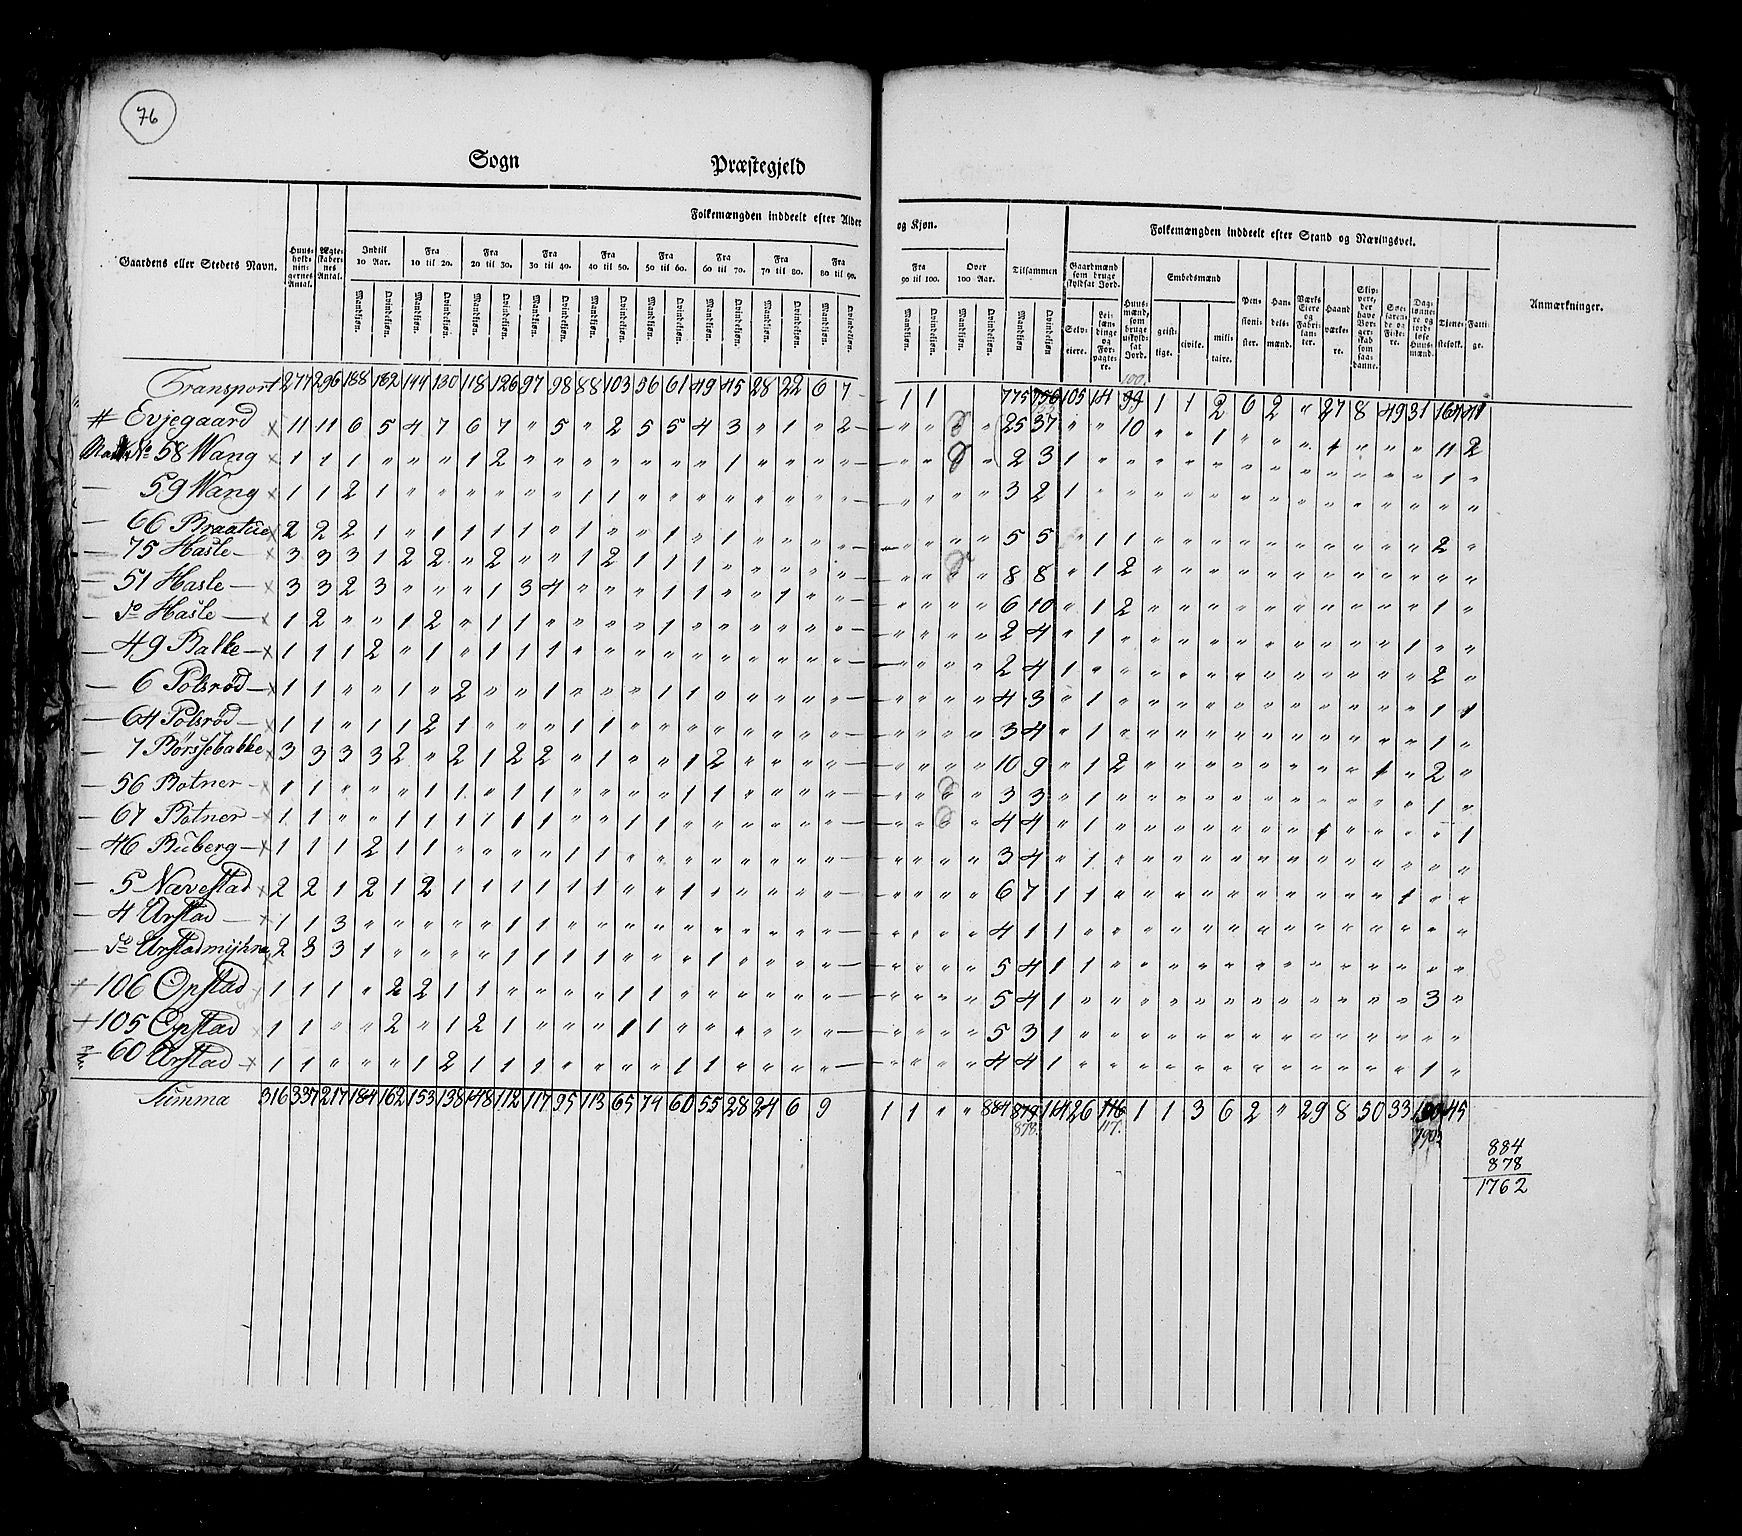 76
Sogn Præstegjeld
Folkemængden inddeelt efter Alder og Kjøn. Folkemængden inddeelt efter Stand og Næringsvei.
Gaardens eller Stedets Navn. Huusholdningernes Antal. Ægteskabernes Antal. Indtil 10 Aar. Fra 10 til 20. Fra 20 til 30. Fra 30 til 40. Fra 40 til 50. Fra 50 til 60. Fra 60 til 70. Fra 70 til 80. Fra 80 til 90. Fra 90 til 100. Over 100 Aar. Tilsammen Gaardmænd som bruge skyldsat Jord. Huusmænd, som bruge uskyldsat Jord. Embedsmænd Pensionister. Handelsmænd. Værks Eiere og Fabrikanter. Haandværkere. Skippere, der have Borgerskab som saadanne. Søefarende og Fiskere. Daglønnere og jordløse Huusmænd. Tjenestefolk. Fattige. Anmærkninger.
Mandkjøn. Qvindekjøn. Mandkjøn. Qvindekjøn. Mandkjøn. Qvindekjøn. Mandkjøn. Qvindekjøn. Mandkjøn. Qvindekjøn. Mandkjøn. Qvindekjøn. Mandkjøn. Qvindekjøn. Mandkjøn. Qvindekjøn. Mandkjøn. Qvindekjøn. Mandkjøn. Qvindekjøn. Mandkjøn. Qvindekjøn. Mandkjøn Qvindekjøn Selveiere. Leilændinge og Forpagtere. geistlige. civile. militaire.
100.
Transport 277 296 188 162 144 130 118 126 97 98 88 103 56 61 49 45 28 22 6 7 1 1 775 105 14 99 1 1 2 6 2 " 27 8 49 31 164 41
# Evjegaard x 11 11 6 5 4 7 6 7 " 5 " 2 5 5 4 3 " 1 " 2 — " " " 25 37 " " 10 " " 1 " " " " " " " 11 2
No 58 Wang x 1 1 1 " " " 1 2 " " " " " " " 1 " " " " — " " " 2 3 1 " " " " " " " " 1 " " " 1 "
— 59 Wang x 1 1 2 1 " " " " " " 1 1 " " " " " " " " — " " " " 3 2 1 " " " " " " " " " " " " " "
— 66 Braatue x 2 2 2 1 " 1 1 1 1 " 1 " " 1 " 1 " " " " — " " " " 5 5 " 1 1 " " " " " " " " " " 2 "
— 75 Hasle — x 3 3 3 1 2 2 " 2 " " 1 2 1 1 1 " " " " " — " " " 8 8 " 1 2 " " " " " " " " " " " "
— 51 Hasle — x 3 3 2 3 " " " 1 3 4 " " " 1 1 " " 1 " " — " " " " 6 10 " 1 2 " " " " " " " " " " 1 "
— do Hasle — x 1 2 " " 1 2 " 1 1 " " " " 1 " " " " " " — " " " " 2 4 " 1 " " " " " " " " " " 1 " "
— 49 Balke — x 1 1 1 2 " 1 " 1 1 1 " " " " " " " " " " — " " " " 2 4 1 " " " " " " " " " " " " 2 "
— 6 Polsrød — x 1 1 " " 1 " 2 " " 1 " " " 1 1 " " " " " — " " " " 4 3 " 1 " " " " " " " " " " " 1 1
— 64 Polsrød — x 1 1 " 1 1 2 1 " " " 1 1 " " " " " " " " — " " " " 3 4 " 1 " " " " " " " " " " " 1 "
— 7 Børssebakke x 3 3 3 3 2 " 2 1 2 2 " 1 " " 1 2 " " " " — " " " " 10 9 " 1 2 " " " " " " " " 1 " 2 "
— 56 Botner — x 1 1 " " " 1 1 " 1 1 " " " " 1 1 " " " " — " " " 3 3 " 1 " " " " " " " " " " " 1 "
— 67 Botner — x 1 1 " " 1 1 1 1 1 1 " " 1 1 " " " " " " — " " " 4 4 " 1 " " " " " " " 1 " " " " 1
— 46 Buberg — x 1 1 1 2 1 1 " " " " 1 1 " " " " " " " " — " " " " 3 4 " 1 " " " " " " " " " " " " "
— 5 Nævestad x 2 2 1 2 1 2 1 1 1 1 1 1 " " 1 " " " " " — " " " " 6 7 1 1 " " " " " " " " " " 1 " "
— 4 Urstad — x 1 1 3 " " " " " 1 1 " " " " " " " " " " — " " " " 4 1 1 " " " " " " " " " " " " " "
— do Urstadmyhre x 2 3 3 1 " " " " 1 1 1 1 " " " 1 " " " " — " " " " 5 4 1 1 " " " " " " " " " " " " "
+ 106 Opstad x 1 1 1 " 2 2 1 1 " " " " 1 1 " " " " " " — " " " " 5 4 1 " " " " " " " " " " " " 3 "
+ 105 Opstad x 1 1 " " 2 " 1 2 1 " " " 1 1 " " " " " " — " " " " 5 3 1 " " " " " " " " " " " " " "
60 Urstad — x 1 1 " " " 1 2 1 1 1 " " " " 1 1 " " " " — " " " " 4 4 1 " " " " " " " " " " " " 1 "
Summa 316 337 217 184 162 153 138 148 112 117 95 113 65 74 60 55 28 24 6 9 1 1 " " 884 879 114 26 116 1 1 3 6 2 " 29 8 50 33 190 45
878. 117. 190.
884
878
1762